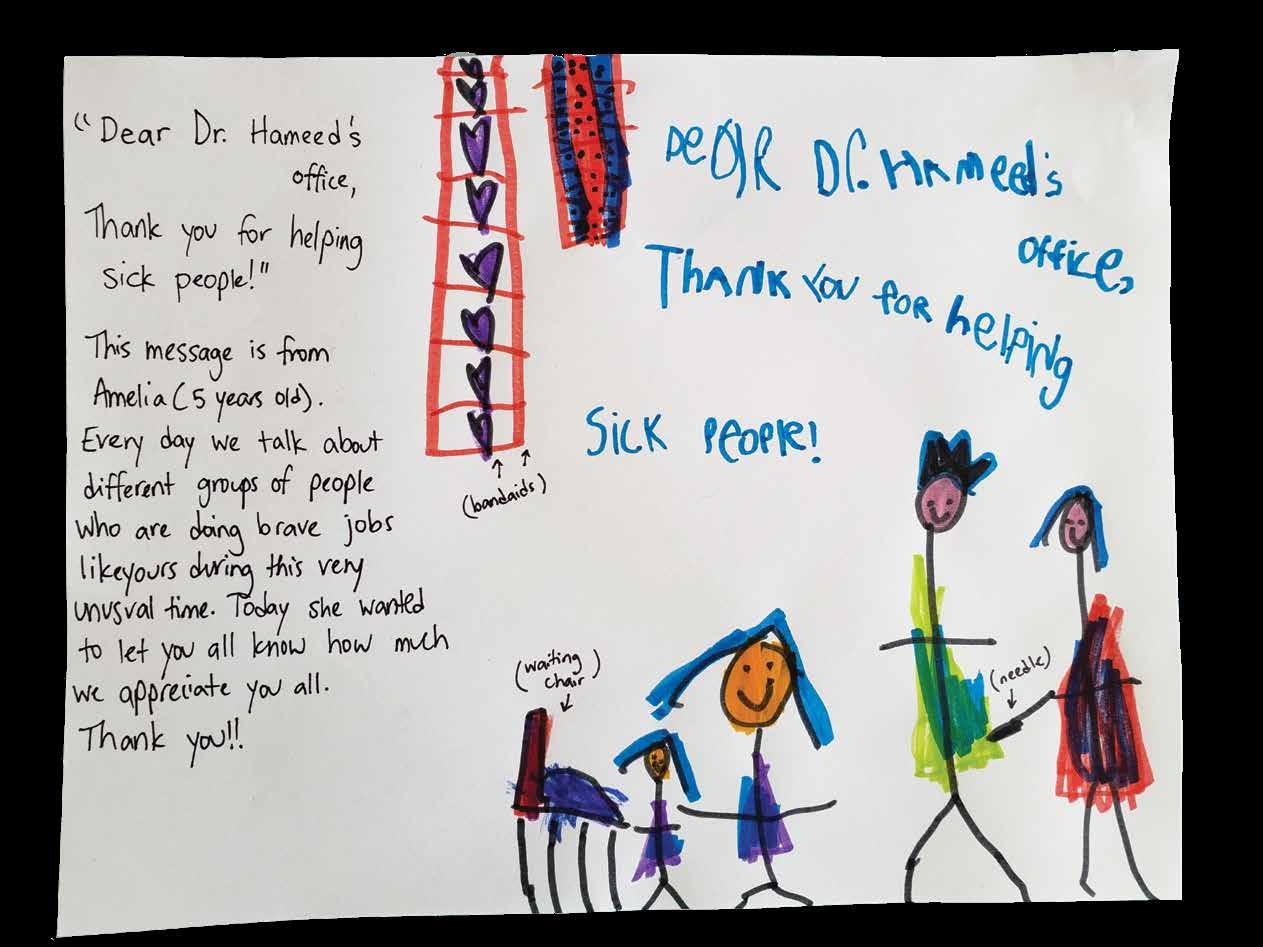 "Dear Dr. Hameed's
office,
Thank you for helping
sick people!"
This message is from
Amelia (5 years old).
Every day we talk about
different groups of people
who are doing brave jobs
likeyours during this very
unusual time. Today she wanted
to let you all know how much
we appreciate you all.
Thank you!!
(bandaids)
DeAR Dr. HAMeed's
office,
ThANK You foR helping
Sick PeoPle!
(waiting
chair)
(needle)